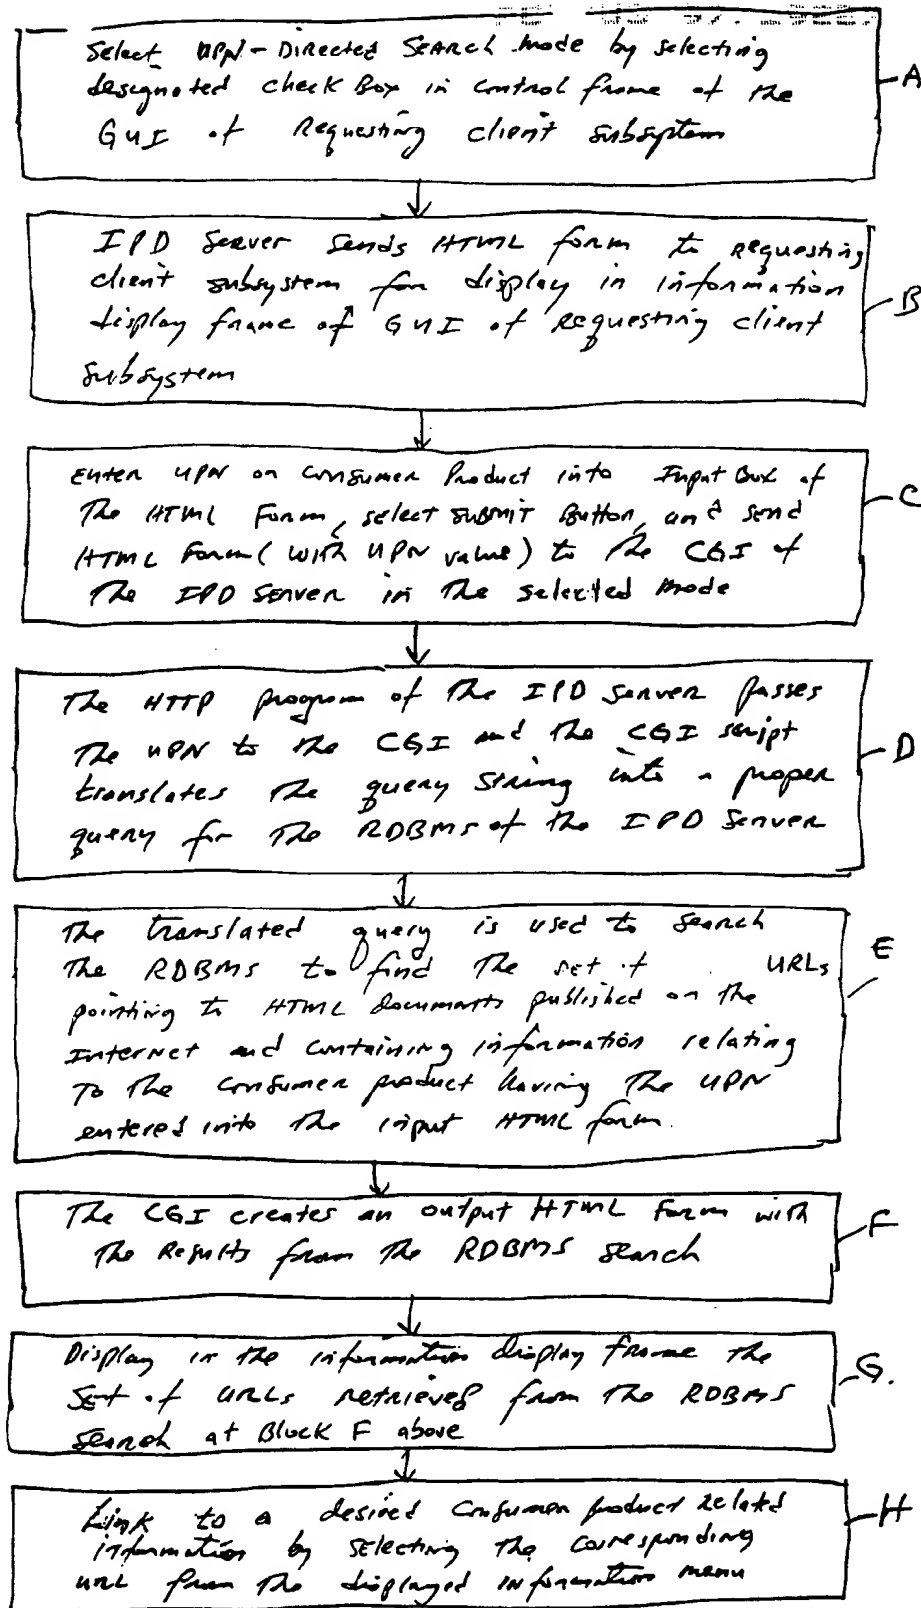 Select UPN-Directed Search mode by selecting
designated check Box in control frame of the
GUI of Requesting client subsystem
A
IPD Server sends HTML form to requesting
client subsystem for display in information
display frame of GUI of requesting client
subsystem
B
Enter UPN on Consumer Product into Input Box of
The HTML Form, select SUBMIT Button, and send
HTML Form (with UPN value) to the CGI of
The IPD Server in the selected mode
C
The HTTP program of the IPD Server passes
The UPN to the CGI and the CGI script
translates the query string into a proper
query for the RDBMS of the IPD Server
D
The translated query is used to search
the RDBMS to find the set of URLs
pointing to HTML documents published on the
Internet and containing information relating
To the consumer product having the UPN
entered into the input HTML form.
E
The CGI creates an output HTML Form with
The Results from the RDBMS search
F
Display in the information display frame the
Set of URLs retrieved from the RDBMS
Search at Block F above
G.
Link to a desired consumer product related
information by selecting the corresponding
URL from the displayed information menu
H